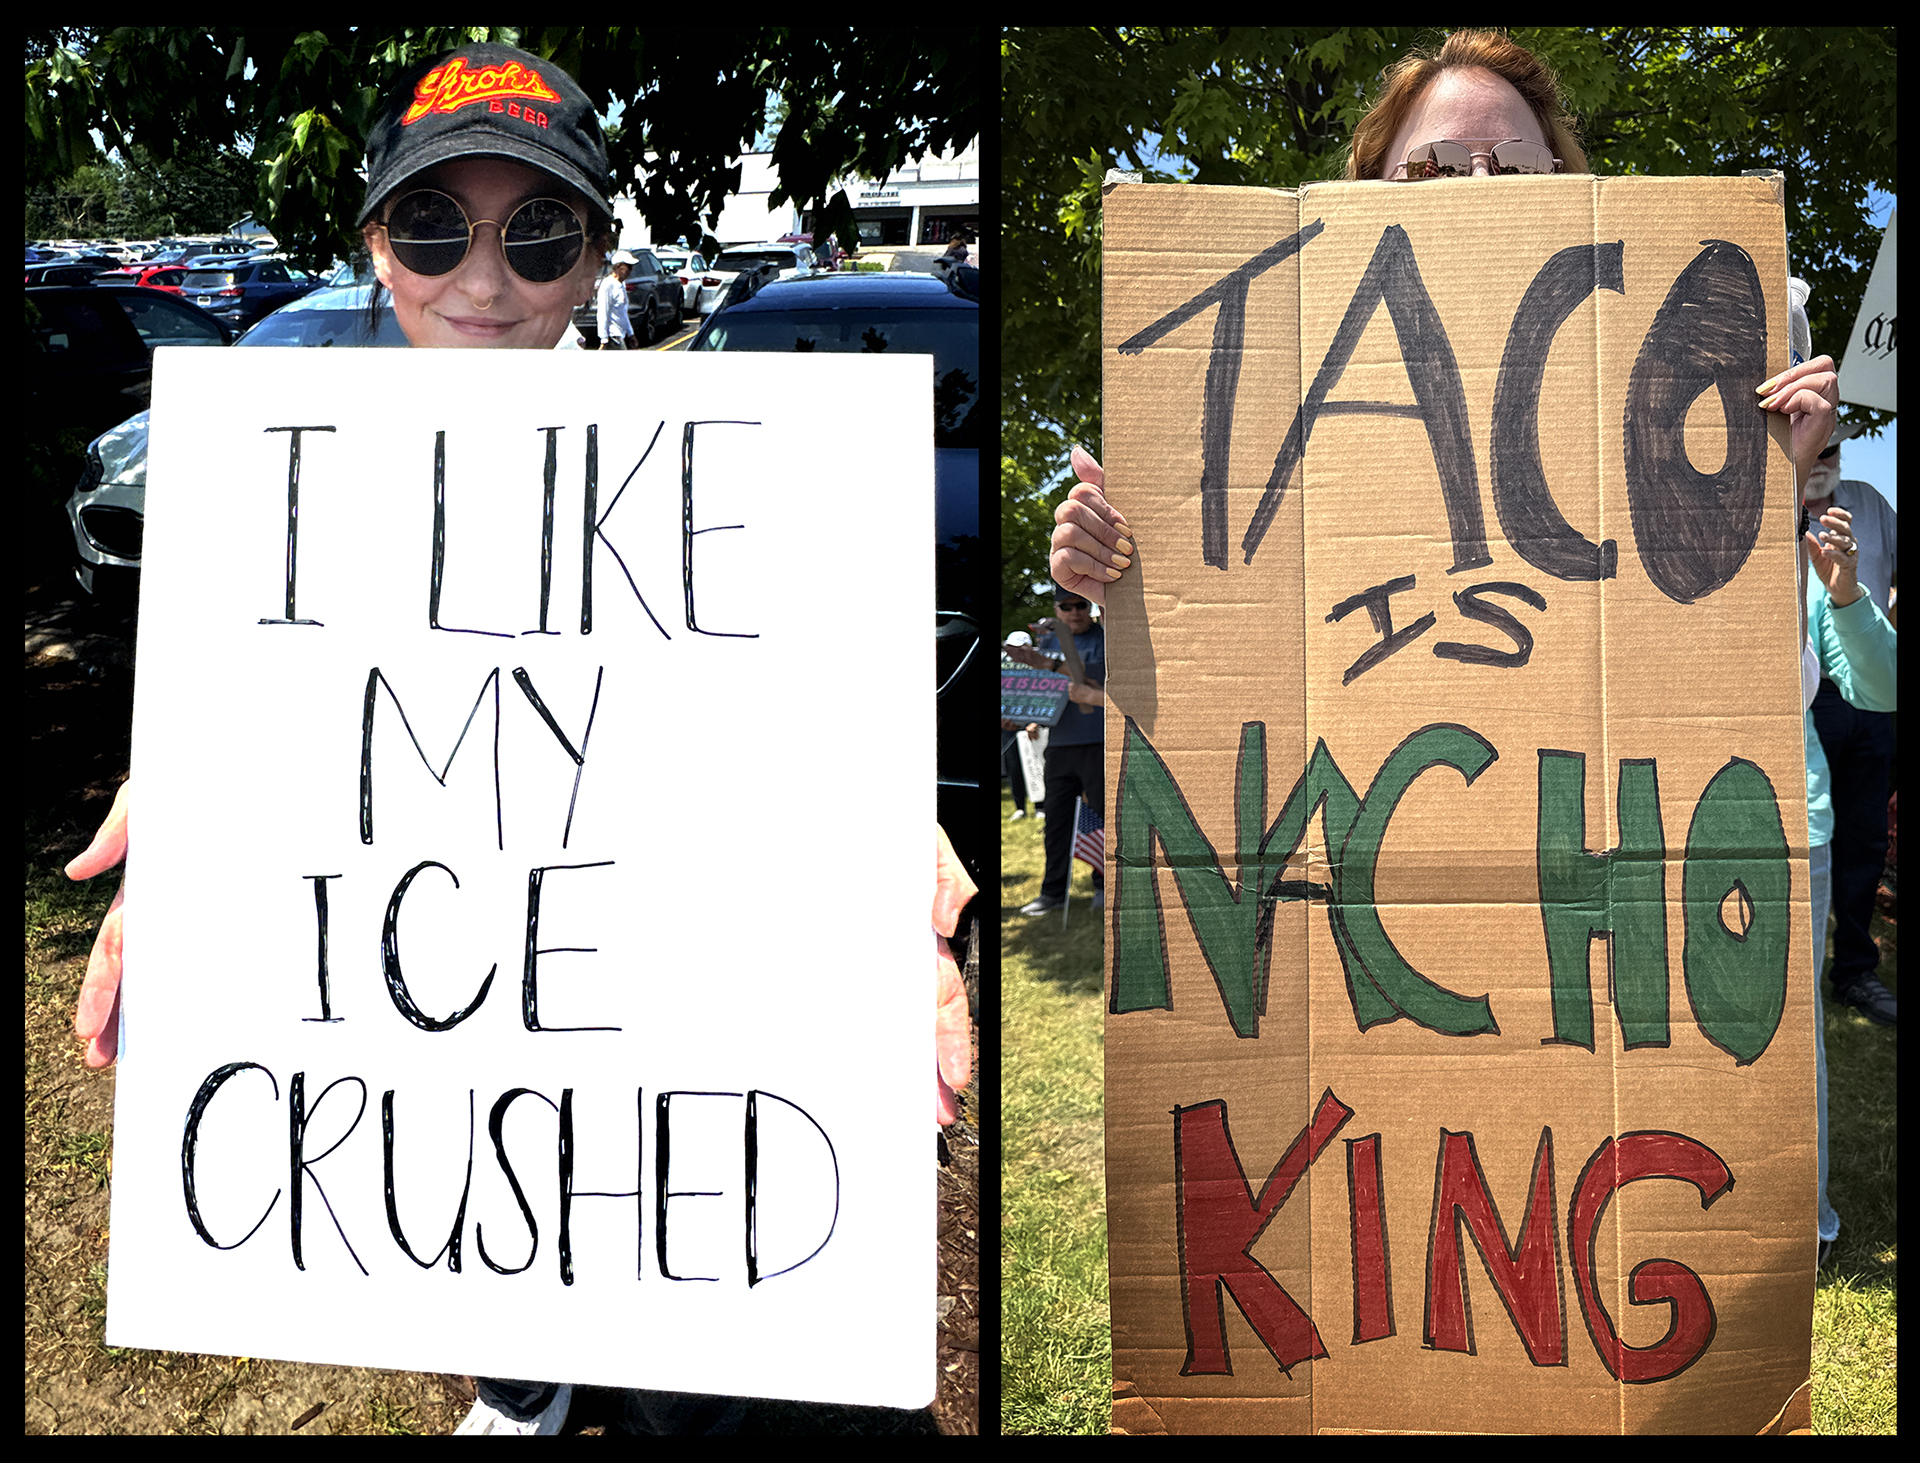 Stroh's
BEER
I LIKE
MY
ICE
CRUSHED
TACO
IS
NACHO
KING
VE IS LOVE
IS LIFE